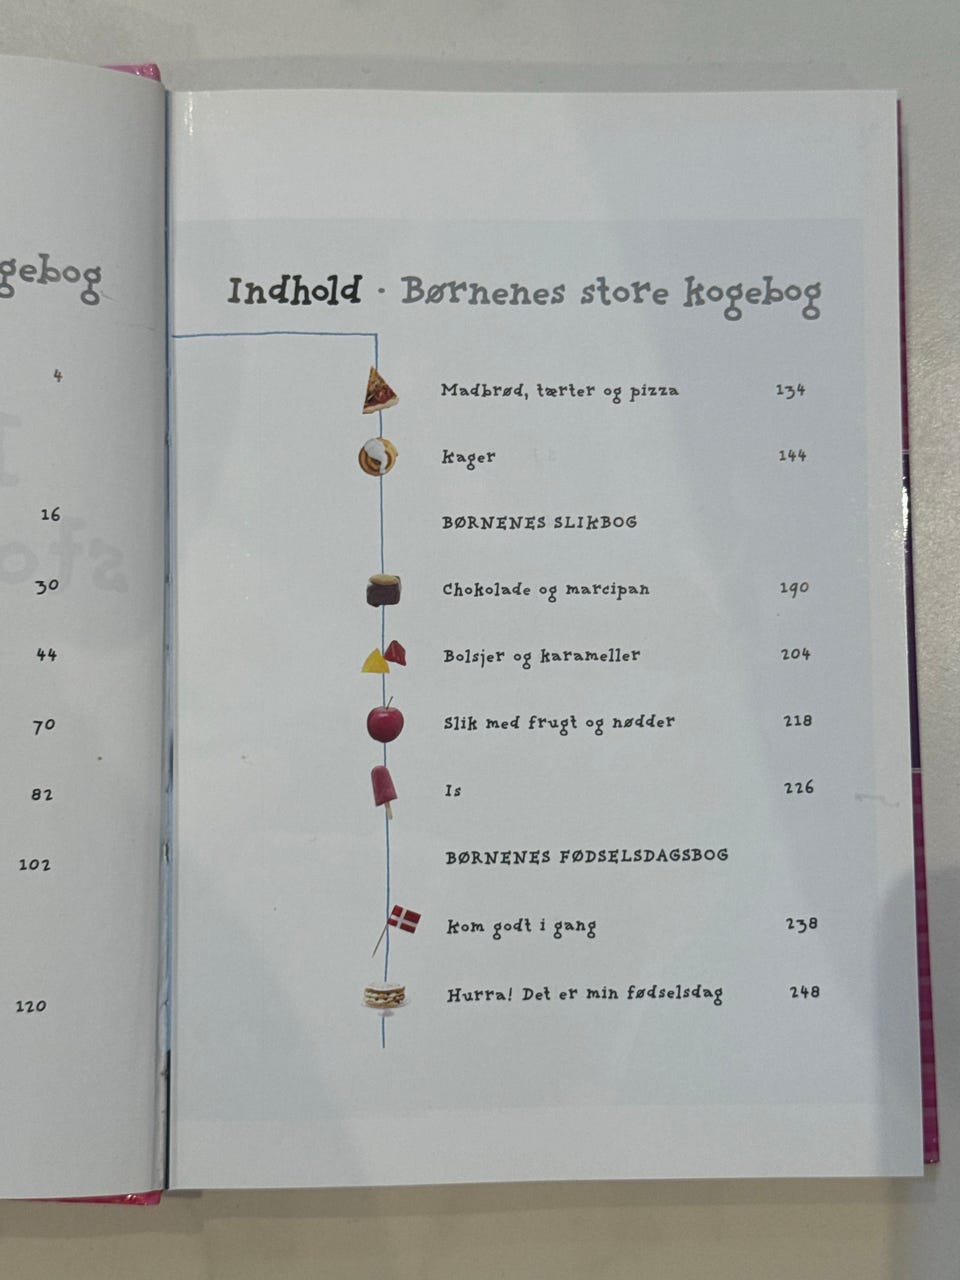 gebog
4
16
30
44
70
82
102
120
Indhold · Børnenes store kogebog
Madbrød, tærter og pizza 134
Kager 144
BØRNENES SLIKBOG
Chokolade og marcipan 190
Bolsjer og karameller 204
Slik med frugt og nødder 218
Is 226
BØRNENES FØDSELSDAGSBOG
Kom godt i gang 238
Hurra! Det er min fødselsdag 248